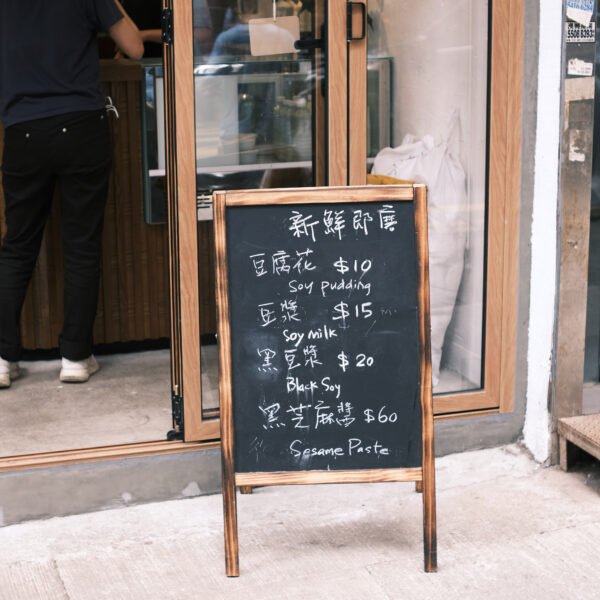 新鮮即磨
豆腐花 $10
Soy pudding
豆漿 $15
Soy milk
黑豆漿 $20
Black Soy
黑芝麻醬 $60
Sesame Paste